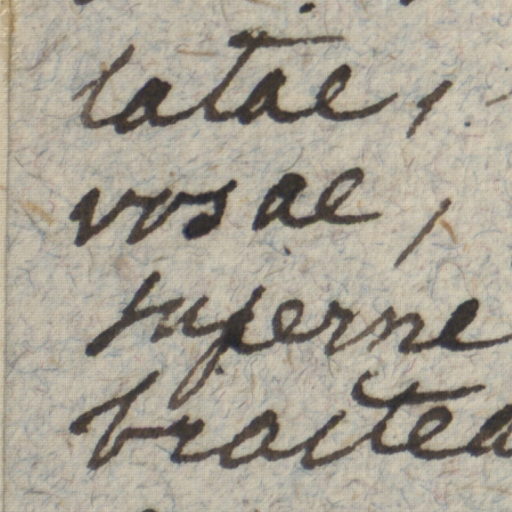 latae,
vosae,
superne
bractea